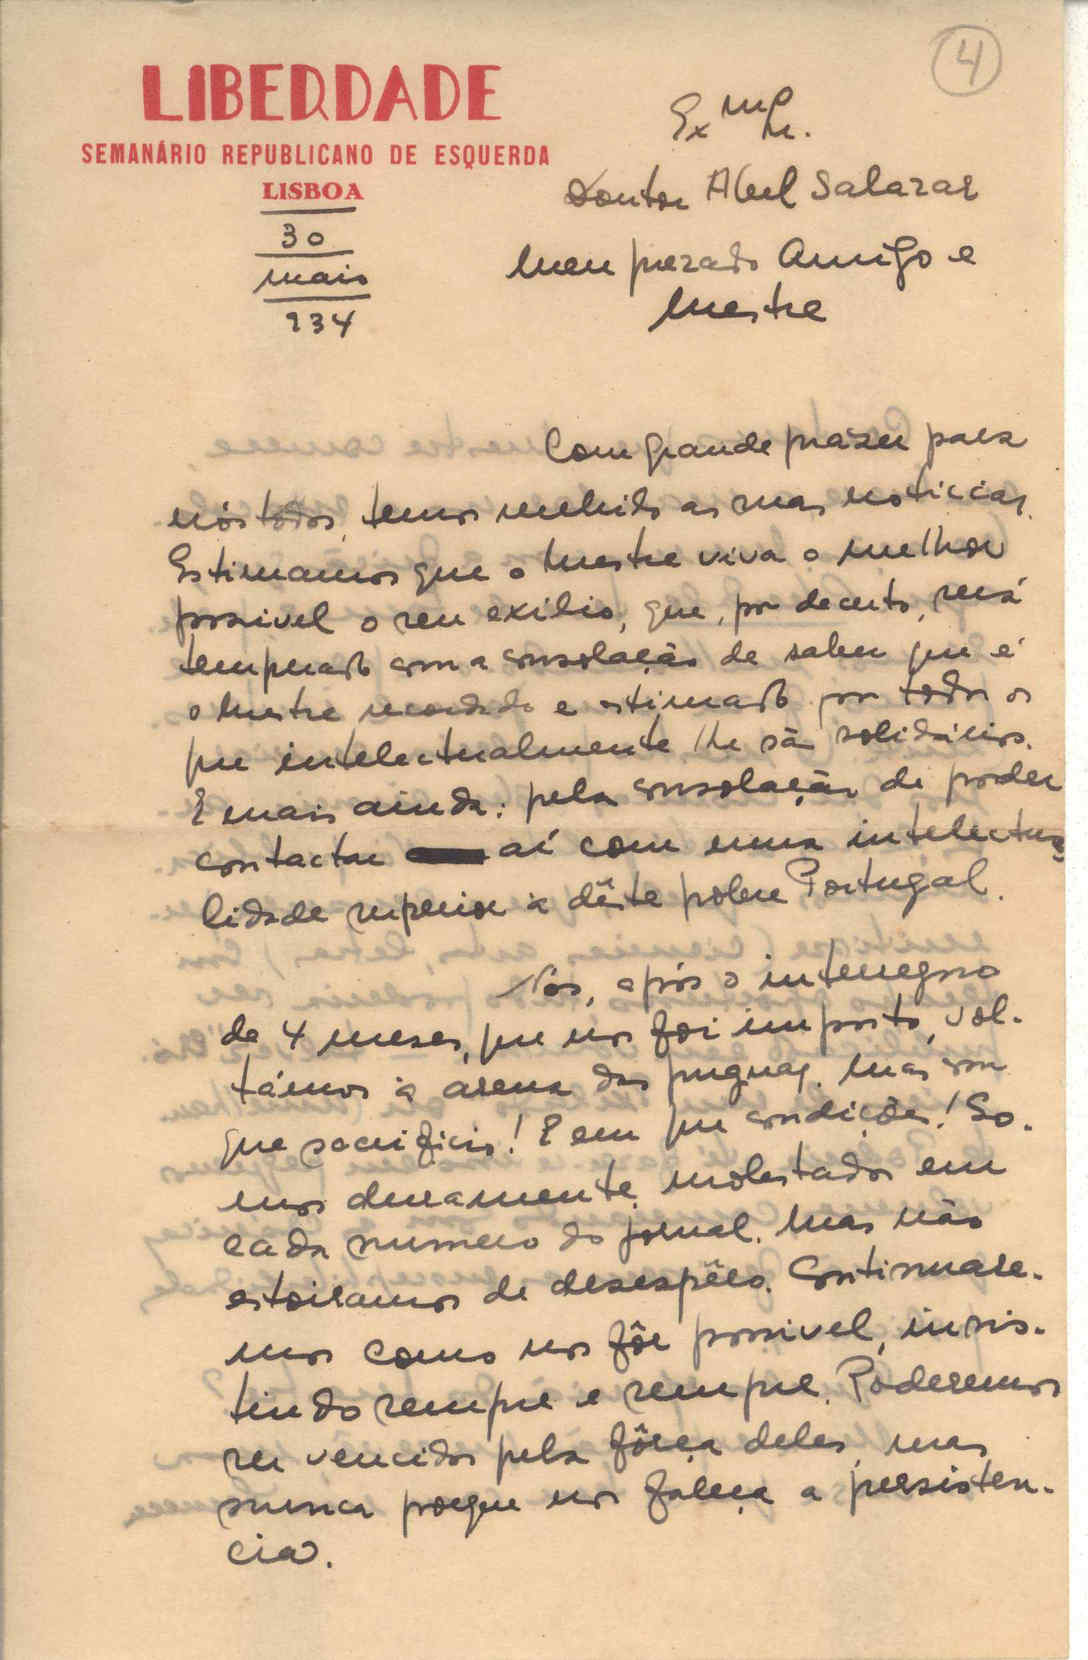 4
LIBERDADE
SEMANÁRIO REPUBLICANO DE ESQUERDA
LISBOA
30
maio
934
Exmo Sr.
Doutor Abel Salazar
Meu prezado Amigo e
Mestre
Com grande prazer para
nós todos, temos recebido as suas noticias.
Estimamos que o Mestre viva o melhor
possivel o seu exilio, que, por decerto, será
temperado com a consolação de saber que é
o Mestre recordado e estimado por todos os
que intelectualmente lhe são solidários.
E mais ainda: pela consolação de poder
contactar aí com uma intelectua
lidade superior à dêste pobre Portugal.
Nós, após o interregno
de 4 meses, que nos foi imposto, vol-
támos à arena das pugnas. Mas com
que sacrificio! E em que condições! So-
mos duramente molestados em
cada numero do jornal. Mas não
estoiramos de desespêro. Continuare-
mos como nos fôr possivel, insis-
tindo sempre e sempre. Poderemos
ser vencidos pela fôrça deles, mas
nunca porque nos faleça a persisten-
cia.